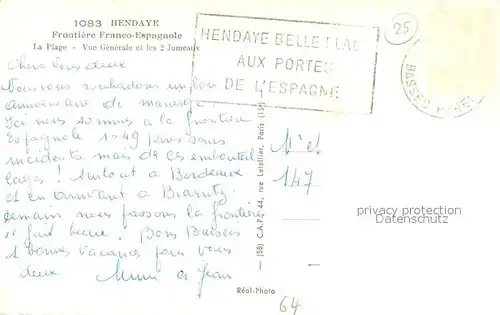 1083 HENDAYE
Frontière Franco-Espagnole
La Plage - Vue Générale et les 2 Jumeaux
HENDAYE BELLE PLAGE
AUX PORTES
DE L'ESPAGNE
25
BASSES PYRENEES
Chers Vous deux
Nous vous souhaitons un bon
anniversaire de mariage
Ici nous sommes a la frontière
Espagnole 1049 sans
incidents mais de ces embouteil
lages ! Surtout a Bordeaux
et en arrivant a Biarritz
demain nous passons la frontière
il fait beau. Bons Baisers
et bonnes vacances pour vous
deux Mimi et Jean
147
(58) C.A.P., 44, rue Letellier, Paris (15e)
Réal-Photo
64
privacy protection
Datenschutz